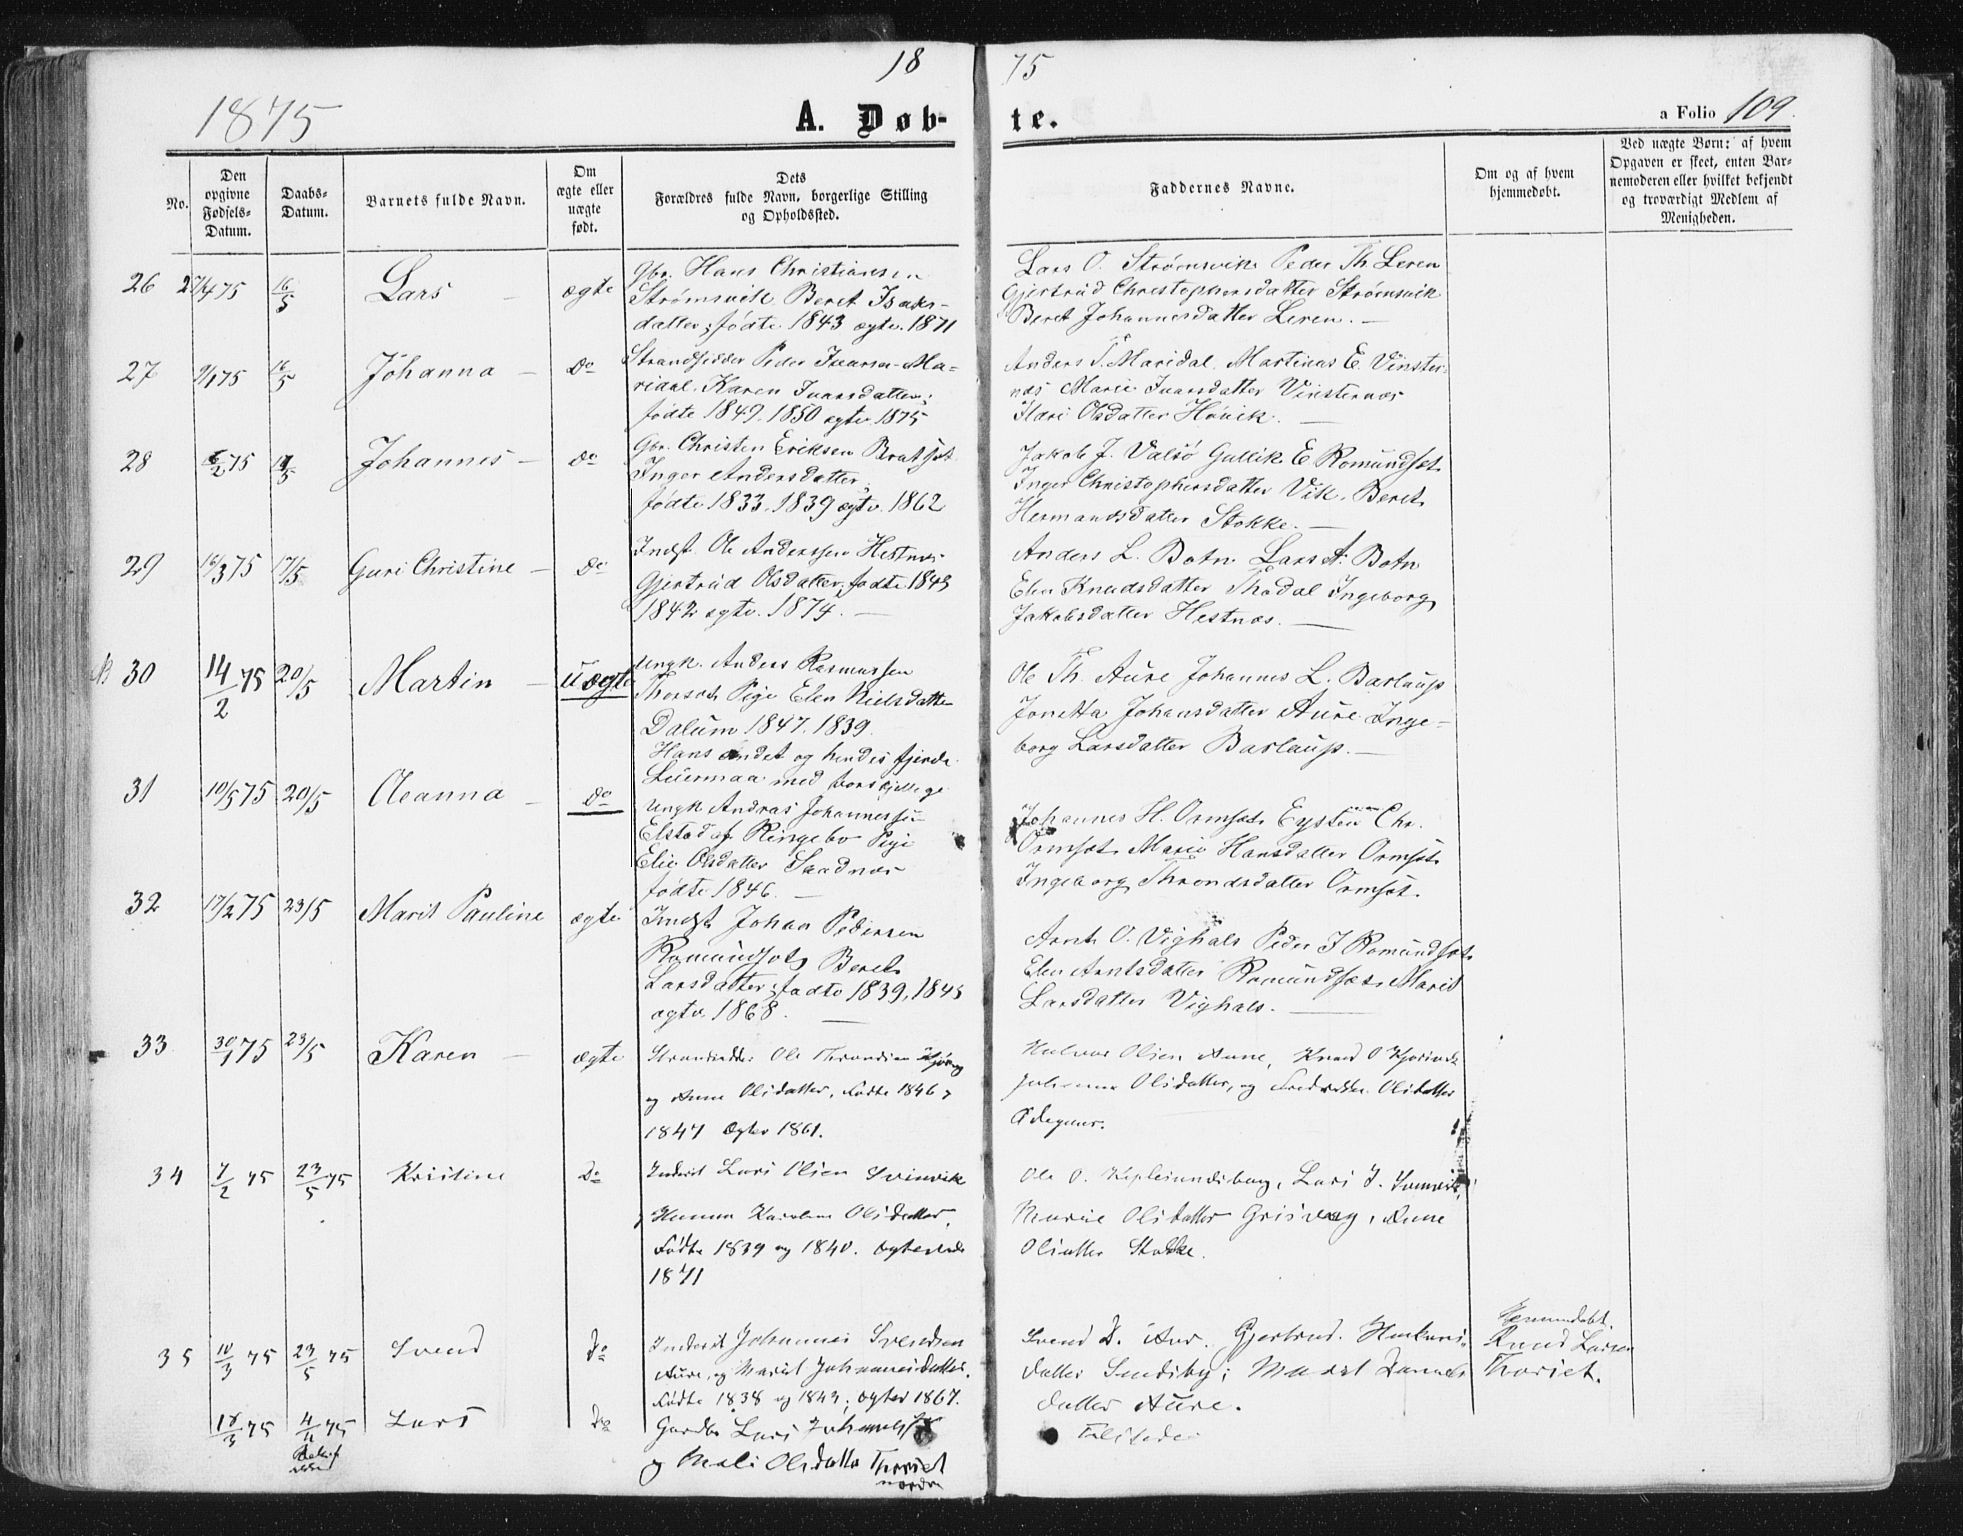 18 75
1875
A. Døb- te.
a Folio 109.
No.
Den opgivne Fødsels-Datum.
Daabs-Datum.
Barnets fulde Navn.
Om ægte eller uægte født.
Dets Forældres fulde Navn, borgerlige Stilling og Opholdssted.
Faddernes Navne.
Om og af hvem hjemmedøbt.
Ved uægte Børn: af hvem Opgaven er skeet, enten Barnemoderen eller hvilket bekjendt og troværdigt Medlem af Menigheden.
26 27/4 75 16/5 Lars – ægte
Gbr. Hans Christiansen
Strømsvik Beret Isaks-
datter; fødte 1843 ægtv. 1871
Lars O. Strømsvik Peder Th. Leren
Gjertrud Christophersdatter Strømsvik
Beret Johannesdatter Leren. –
27 9/1 75 16/5 Johanna – Do
Strandsidder Peder Ivarsen Ma-
ridal. Karen Ivarsdatter;
fødte 1849. 1850 ægtv. 1875
Anders T. Maridal. Martinus E. Vinster-
næs Marie Ivarsdatter Vinsternæs
Olsdatter Høvik. –
28 75 17/5 Johannes – Do
Gbr. Christen Eriksen Bratset
Inger Andersdatter;
fødte 1833. 1839 ægtv. 1862
Jakob J. Valsø Gullik E Romundset
Inger Christophersdatter Vik. Beret
Hermandsdatter Stokke. –
29 16/3 75 17/5 Guri Christine – Do
Indst. Ole Anderssen Hestnes
Gjertrud Olsdatter; fødte 1845
1842 ægtv. 1874. –
Anders L. Botn Lars A. Botn
Elen Knudsdatter Thodal Ingeborg
Jakobsdatter Hestnæs. –
30 14/2 75 20/5 Martin – uægte
Ungk. Anders Rasmussen
Pige Elen Nielsdatter
Dalum 1847. 1839.
Hans andet og hendes fjerde
Leiermaal med
Ole Th. Aure Johannes L. Barlaup
Jonetta Johansdatter Aure Inge-
borg Larsdatter Barlaup. –
31 10/5 75 20/5 Oleanna – Do
Ungk Andras Johannessen
Elstad af Ringebo Pige
Elie Olsdatter Saadnæs
fødte 1846. –
Johannes H. Ormset Eysten Chr.
Ormset Marie Hansdatter Ormset
Ingeborg Throndsdatter Ormset.
32 17/2 75 23/5 Marit Pauline ægte
Indst Johan Pedersen
Romundset Beret
Larsdatter; fødte 1839, 1845
ægtv. 1868. –
Arnt O. Vighals Peder J Romundset
Elen Arntsdatter Romundset Marit
Larsdatter Vighals. –
33 30/1 75 23/5 Karen – ægte
Strandsidder Ole Throndsen
og Anne Olsdatter, Fødte 1846 og
1847 Ægtev 1861.
Halvor Olsen Aune, Knud O
Johanna Olsdatter, og Fredrikke Olsdatter
Ødegaar.
34 7/2 75 23/5 75 Kristine Do
Inderst Lars Olsen Svinvik
Olsdatter,
Fødte 1839 og 1840. Ægteviede
1871
Ole O. Lars J. Svinvik
Marie Olsdatter Grisvaag, Anne
Olsdatter Stokke.
35 10/3 75 23/5 75 Svend Do
Inderst Johannes Svendsen
Aure, og Marit Johannesdatter.
Fødte 1838 og 1843; Ægtev 1867.
Svend D. Aur. Gjertrud
datter Marit
datter Aure.
Hjemmedøbt.
Knud Larsen
Thoriet.
18/3 75 4/4 75 Lars Do
Gardbr Lars
og Mali Olsdatter Thoriet
nordre